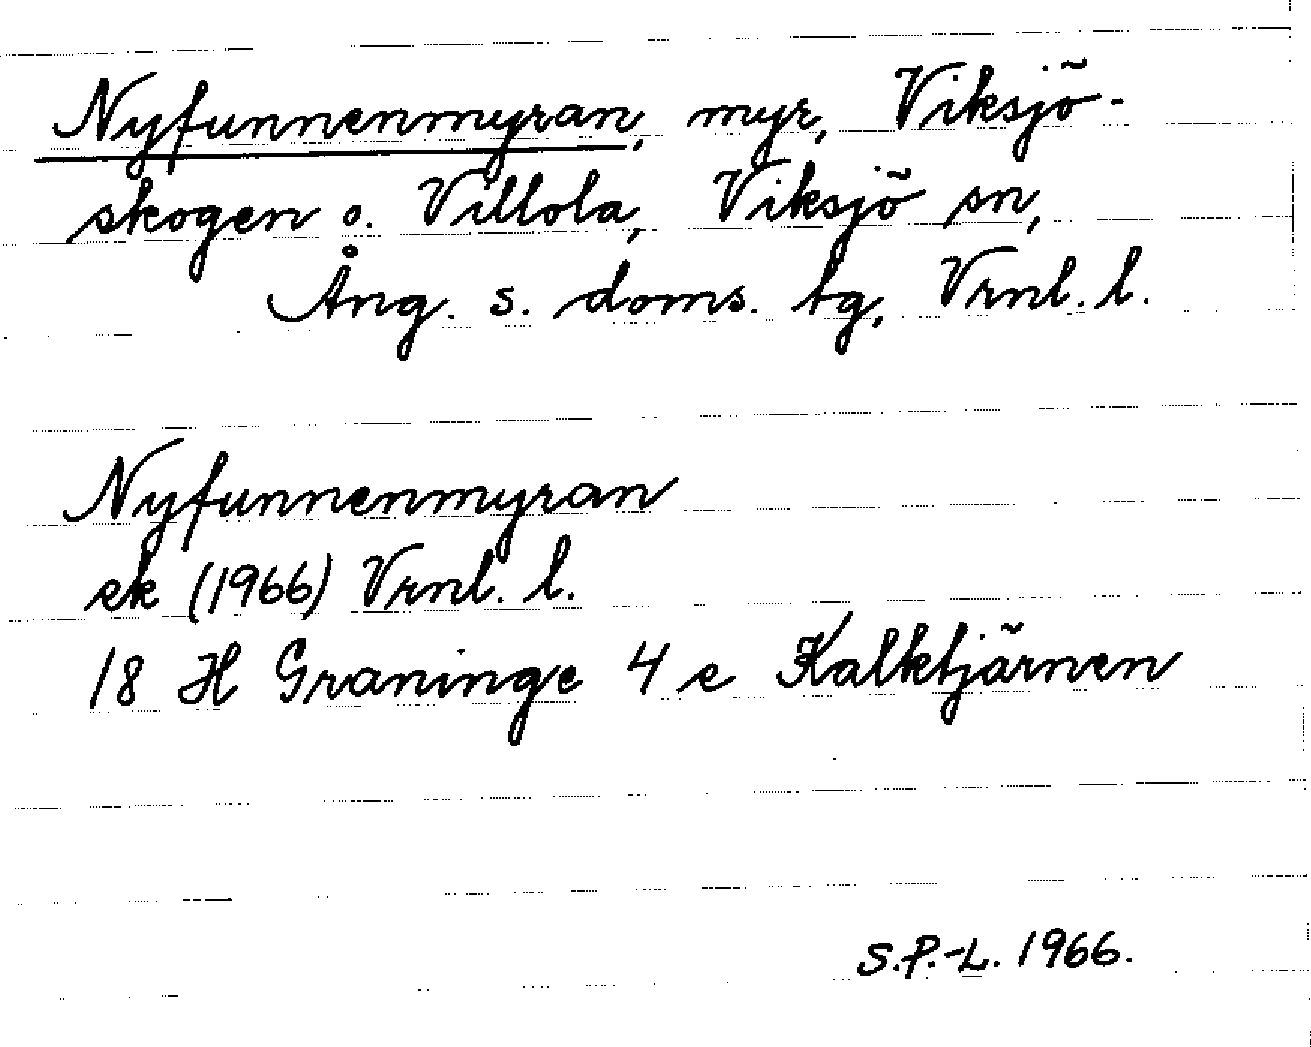 Nyfunnenmyran, myr, Viksjö-
skogen o. Villola, Viksjö sn,
Ång. s. doms. tg, Vrnl. l.
Nyfunnenmyran
ek (1966) Vrnl. l.
18 H Graninge 4 e Kalktjärnen
S.P.-L. 1966.